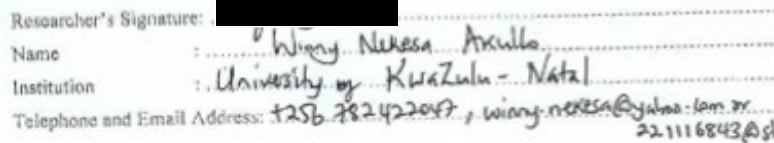 Researcher's Signature:
Name : Winny Nekesa Akullo
Institution : University of KwaZulu-Natal
Telephone and Email Address: +256 782422047, winny.nekesa@yahoo.com or
221116843@st